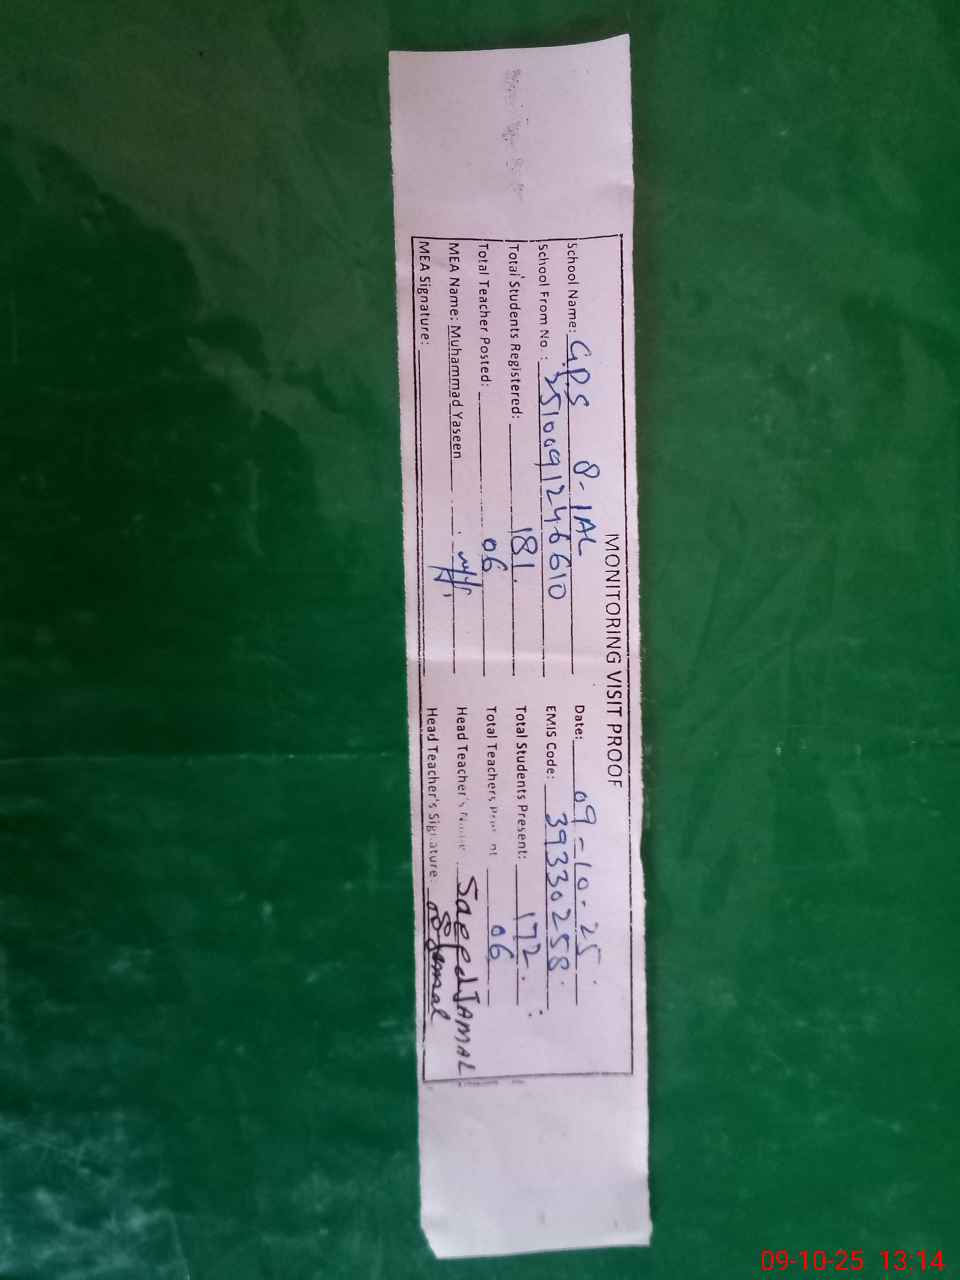 MONITORING VISIT PROOF
School Name: G.P.S 8-1AL Date: 09-10-25
School From No.: 3510091246610 EMIS Code: 39330258
Total Students Registered: 181. Total Students Present: 172.
Total Teacher Posted: 06 Total Teachers 06
MEA Name: Muhammad Yaseen Head Teacher's Name: Saeed JAMAL
MEA Signature: Head Teacher's Signature: Jamal
09-10-25 13:14